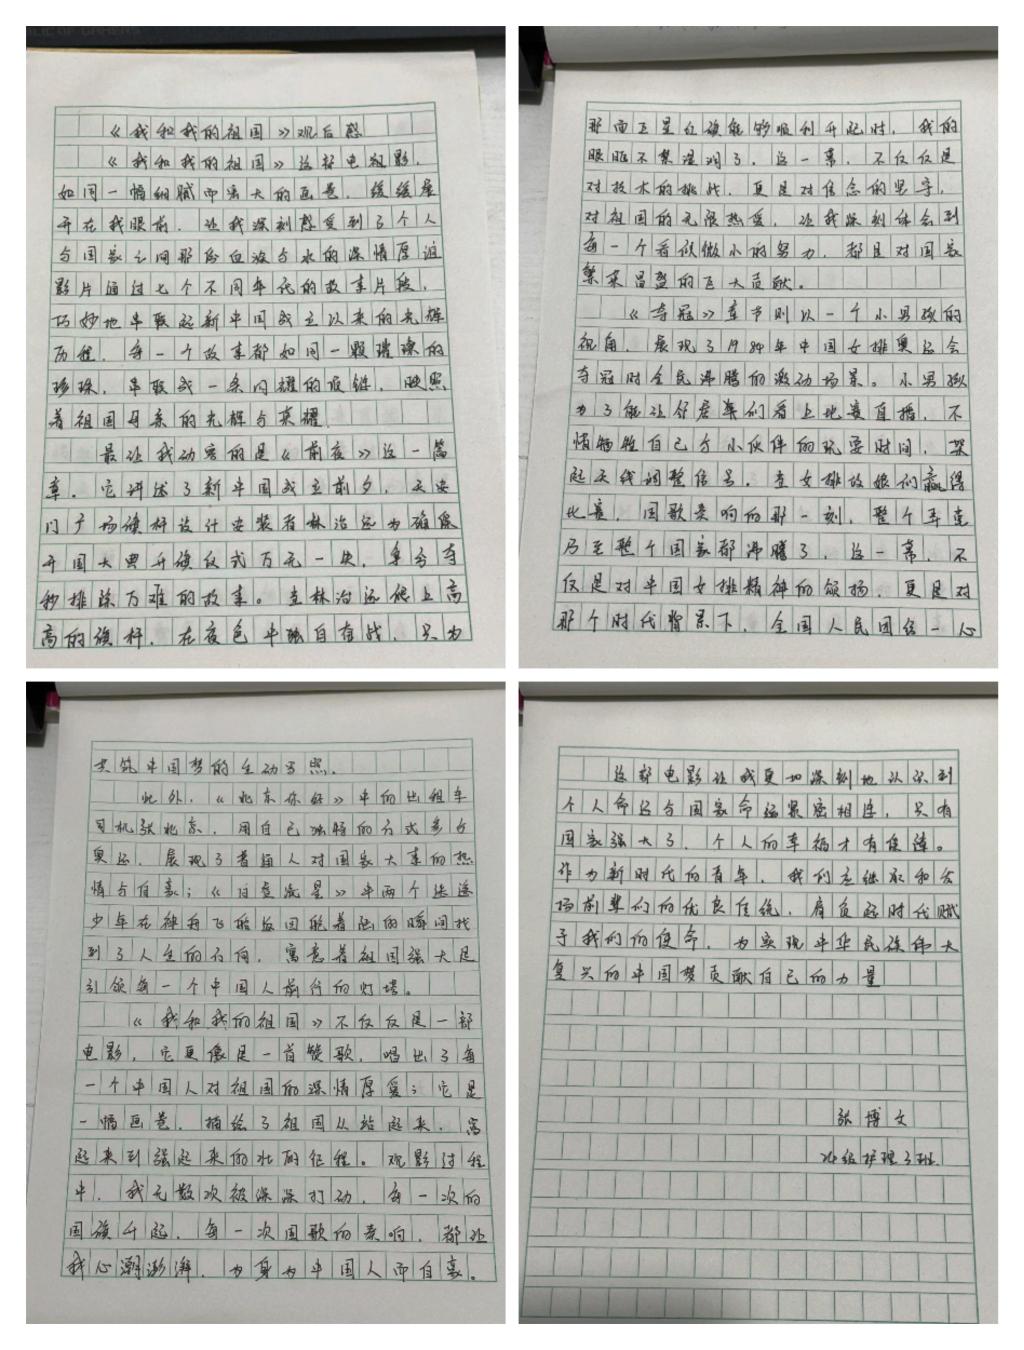 《我和我的祖国》观后感
《我和我的祖国》这部电视影,
如同一幅细腻而宏大的画卷,缓缓展
开在我眼前,让我深刻感受到了个人
与国家之间那份血浓与水的深情厚谊
影片通过七个不同年代的故事片段,
巧妙地串联起新中国成立以来的光辉
历程,每一个故事都如同一颗璀璨的
珍珠,串联成一条闪耀的项链,映照
着祖国母亲的光辉与荣耀.
最让我动容的是《前夜》这一篇
章,它讲述了新中国成立前夕,天安
门广场旗杆设计安装者林治远为确保
开国大典升旗仪式万无一失,争分夺
秒排除万难的故事。当林治远爬上高
高的旗杆,在夜色中独自奋战,只为
那面五星红旗能够顺利升起时,我的
眼眶不禁湿润了,这一幕,不仅仅是
对技术的挑战,更是对信念的坚守,
对祖国的无限热爱,让我深刻体会到
每一个看似微小的努力,都是对国家
繁荣昌盛的巨大贡献。
《夺冠》章节则以一个小男孩的
视角,展现了1984年中国女排奥运会
夺冠时全民沸腾的激动场景。小男孩
为了能让邻居们看上比赛直播,不
惜牺牲自己与小伙伴的玩耍时间,架
起天线调整信号。当女排姑娘们赢得
比赛,国歌奏响的那一刻,整个弄堂
乃至整个国家都沸腾了,这一幕,不
仅是对中国女排精神的颂扬,更是对
那个时代背景下,全国人民团结一心
共筑中国梦的生动写照.
此外,《北京你好》中的出租车
司机张北京,用自己独特的方式参与
奥运,展现了普通人对国家大事的热
情与自豪;《白昼流星》中两个迷途
少年在神舟飞船返回舱着陆的瞬间找
到了人生的方向,寓意着祖国强大是
引领每一个中国人前行的灯塔。
《我和我的祖国》不仅仅是一部
电影,它更像是一首赞歌,唱出了每
一个中国人对祖国的深情厚爱;它是
一幅画卷,描绘了祖国从站起来,富
起来到强起来的壮丽征程。观影过程
中,我无数次被深深打动,每一次的
国旗升起,每一次国歌的奏响,都让
我心潮澎湃,为身为中国人而自豪。
这部电影让我更加深刻地认识到
个人命运与国家命运紧密相连,只有
国家强大了,个人的幸福才有保障。
作为新时代的青年,我们应继承和发
扬前辈们的优良传统,肩负起时代赋
予我们的使命,为实现中华民族伟大
复兴的中国梦贡献自己的力量
张博文
级护理3班